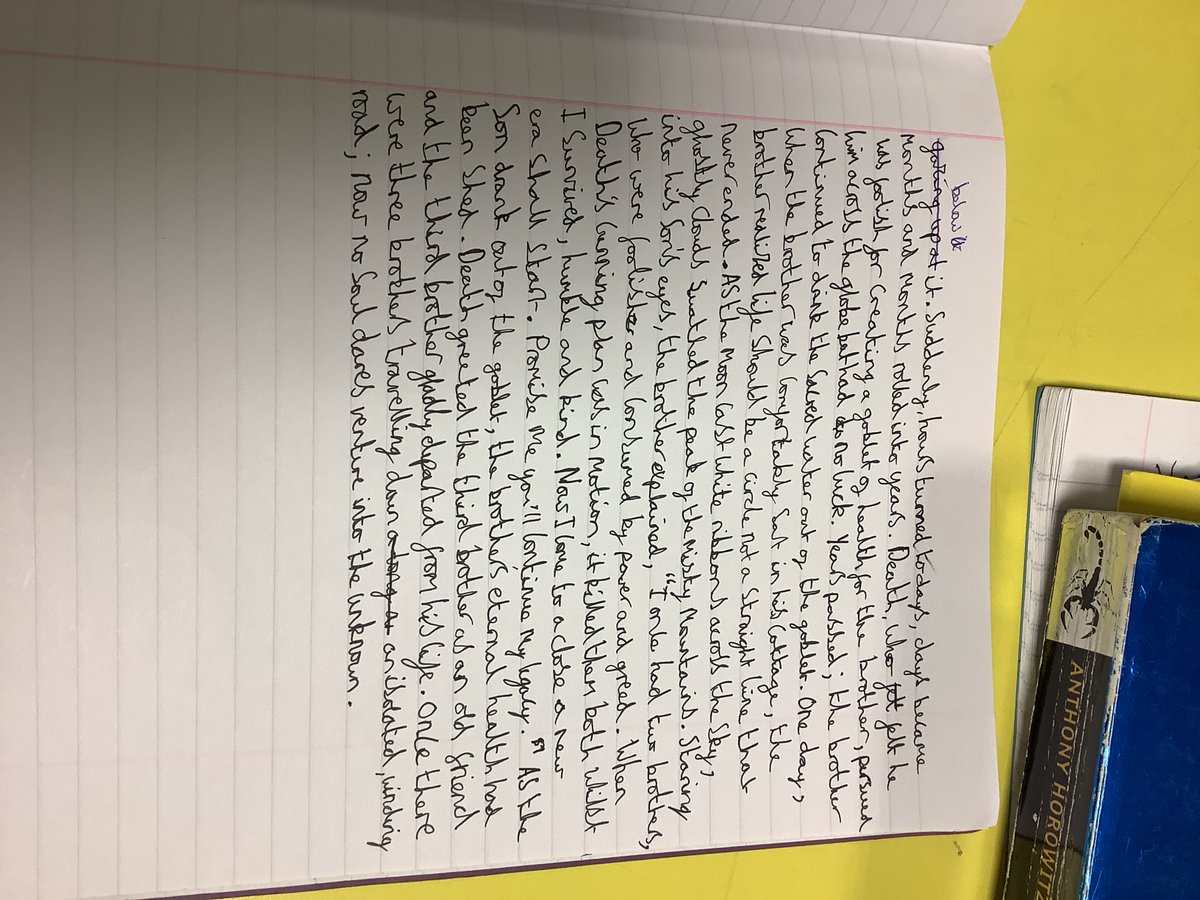 below it
gazing up at it. Suddenly, hours turned to days, days became
months and months rolled into years. Death, who felt he
was foolish for creating a goblet of health for the brother, pursued
him across the globe but had no luck. Years passed; the brother
continued to drink the sacred water out of the goblet. One day,
When the brother was comfortably sat in his cottage, the
brother realised life should be a circle not a straight line that
never ended. As the moon cast white ribbons across the sky,
ghostly clouds swathed the peak of the misty mountains. Staring
into his son's eyes, the brother explained, "I once had two brothers,
who were foolish and consumed by power and greed. When
Death's cunning plan was in motion, it killed them both whilst
I survived, humble and kind. Now I come to a close a new
era shall start. Promise me you'll continue my legacy." As the
Son drank out of the goblet, the brother's eternal health had
been shed. Death greeted the third brother as an old friend
and the third brother gladly departed from his life. Once there
were three brothers travelling down a long a an isolated, winding
road; now no soul dares venture into the unknown.
ANTHONY HOROWITZ